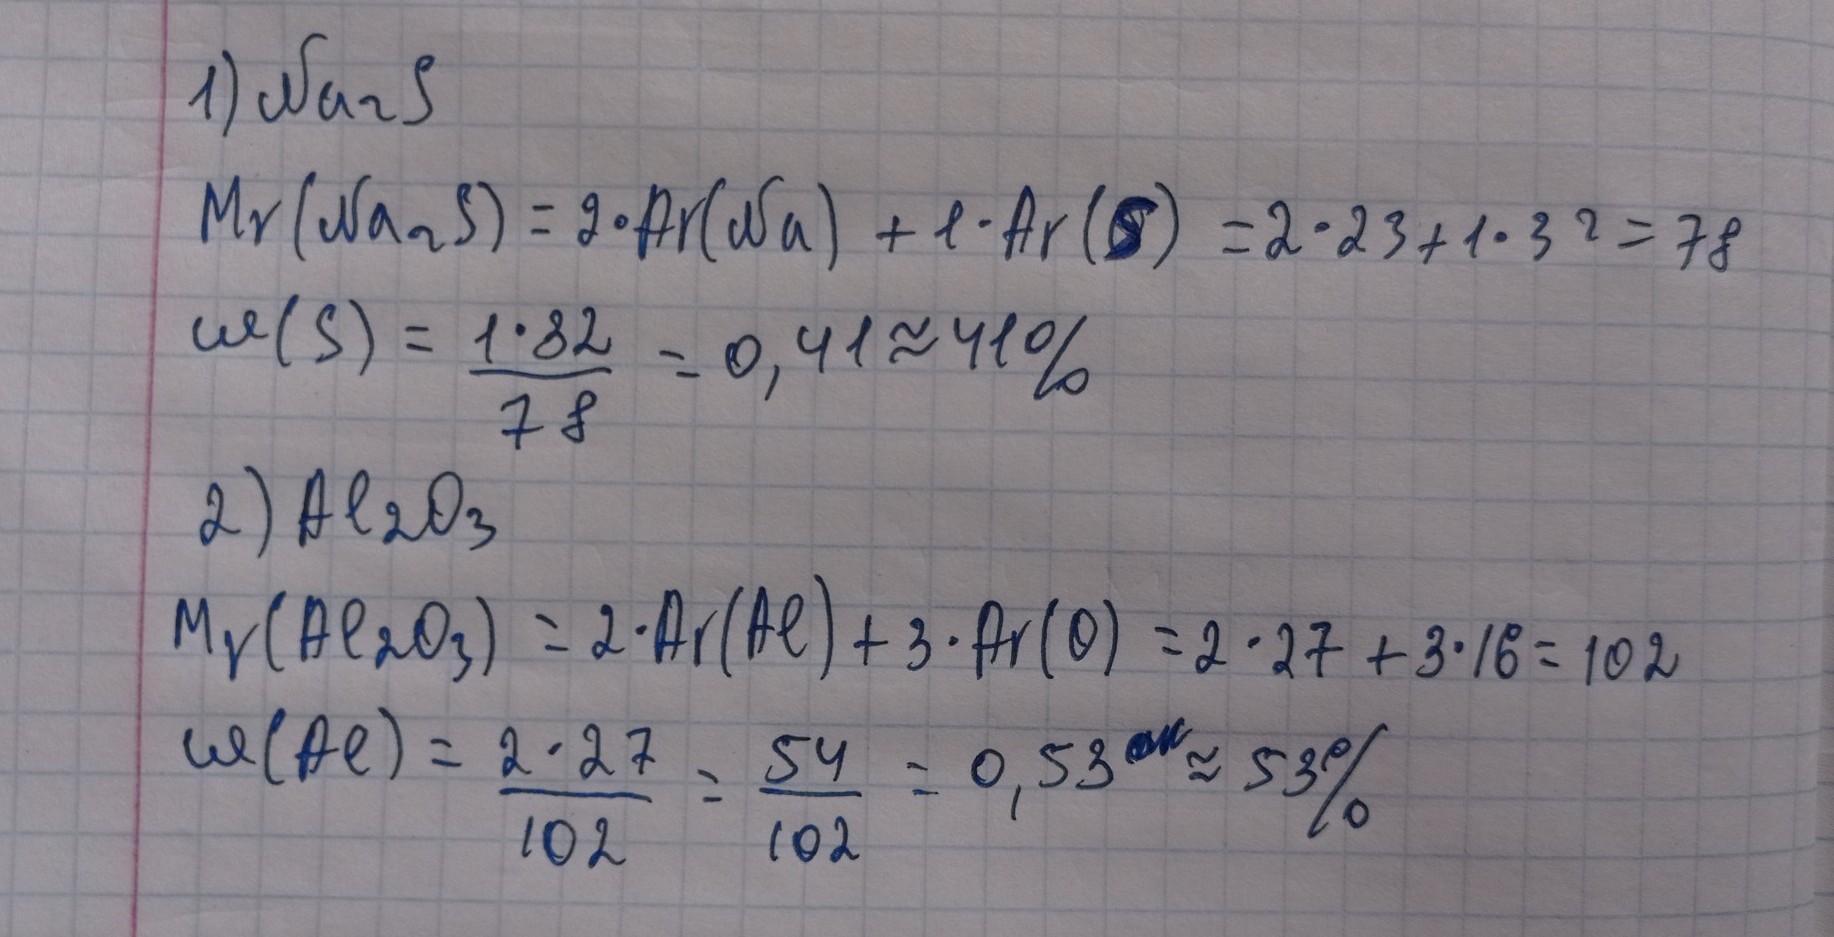 1) Na₂S
Mr(Na₂S) = 2·Ar(Na) + 1·Ar(S) = 2·23+1·32=78
w(S) = 1·32/78 = 0,41≈41%
2) Al₂O₃
Mr(Al₂O₃) = 2·Ar(Al) + 3·Ar(O) = 2·27 + 3·16 = 102
w(Al) = 2·27/102 = 54/102 = 0,53 ≈ 53%